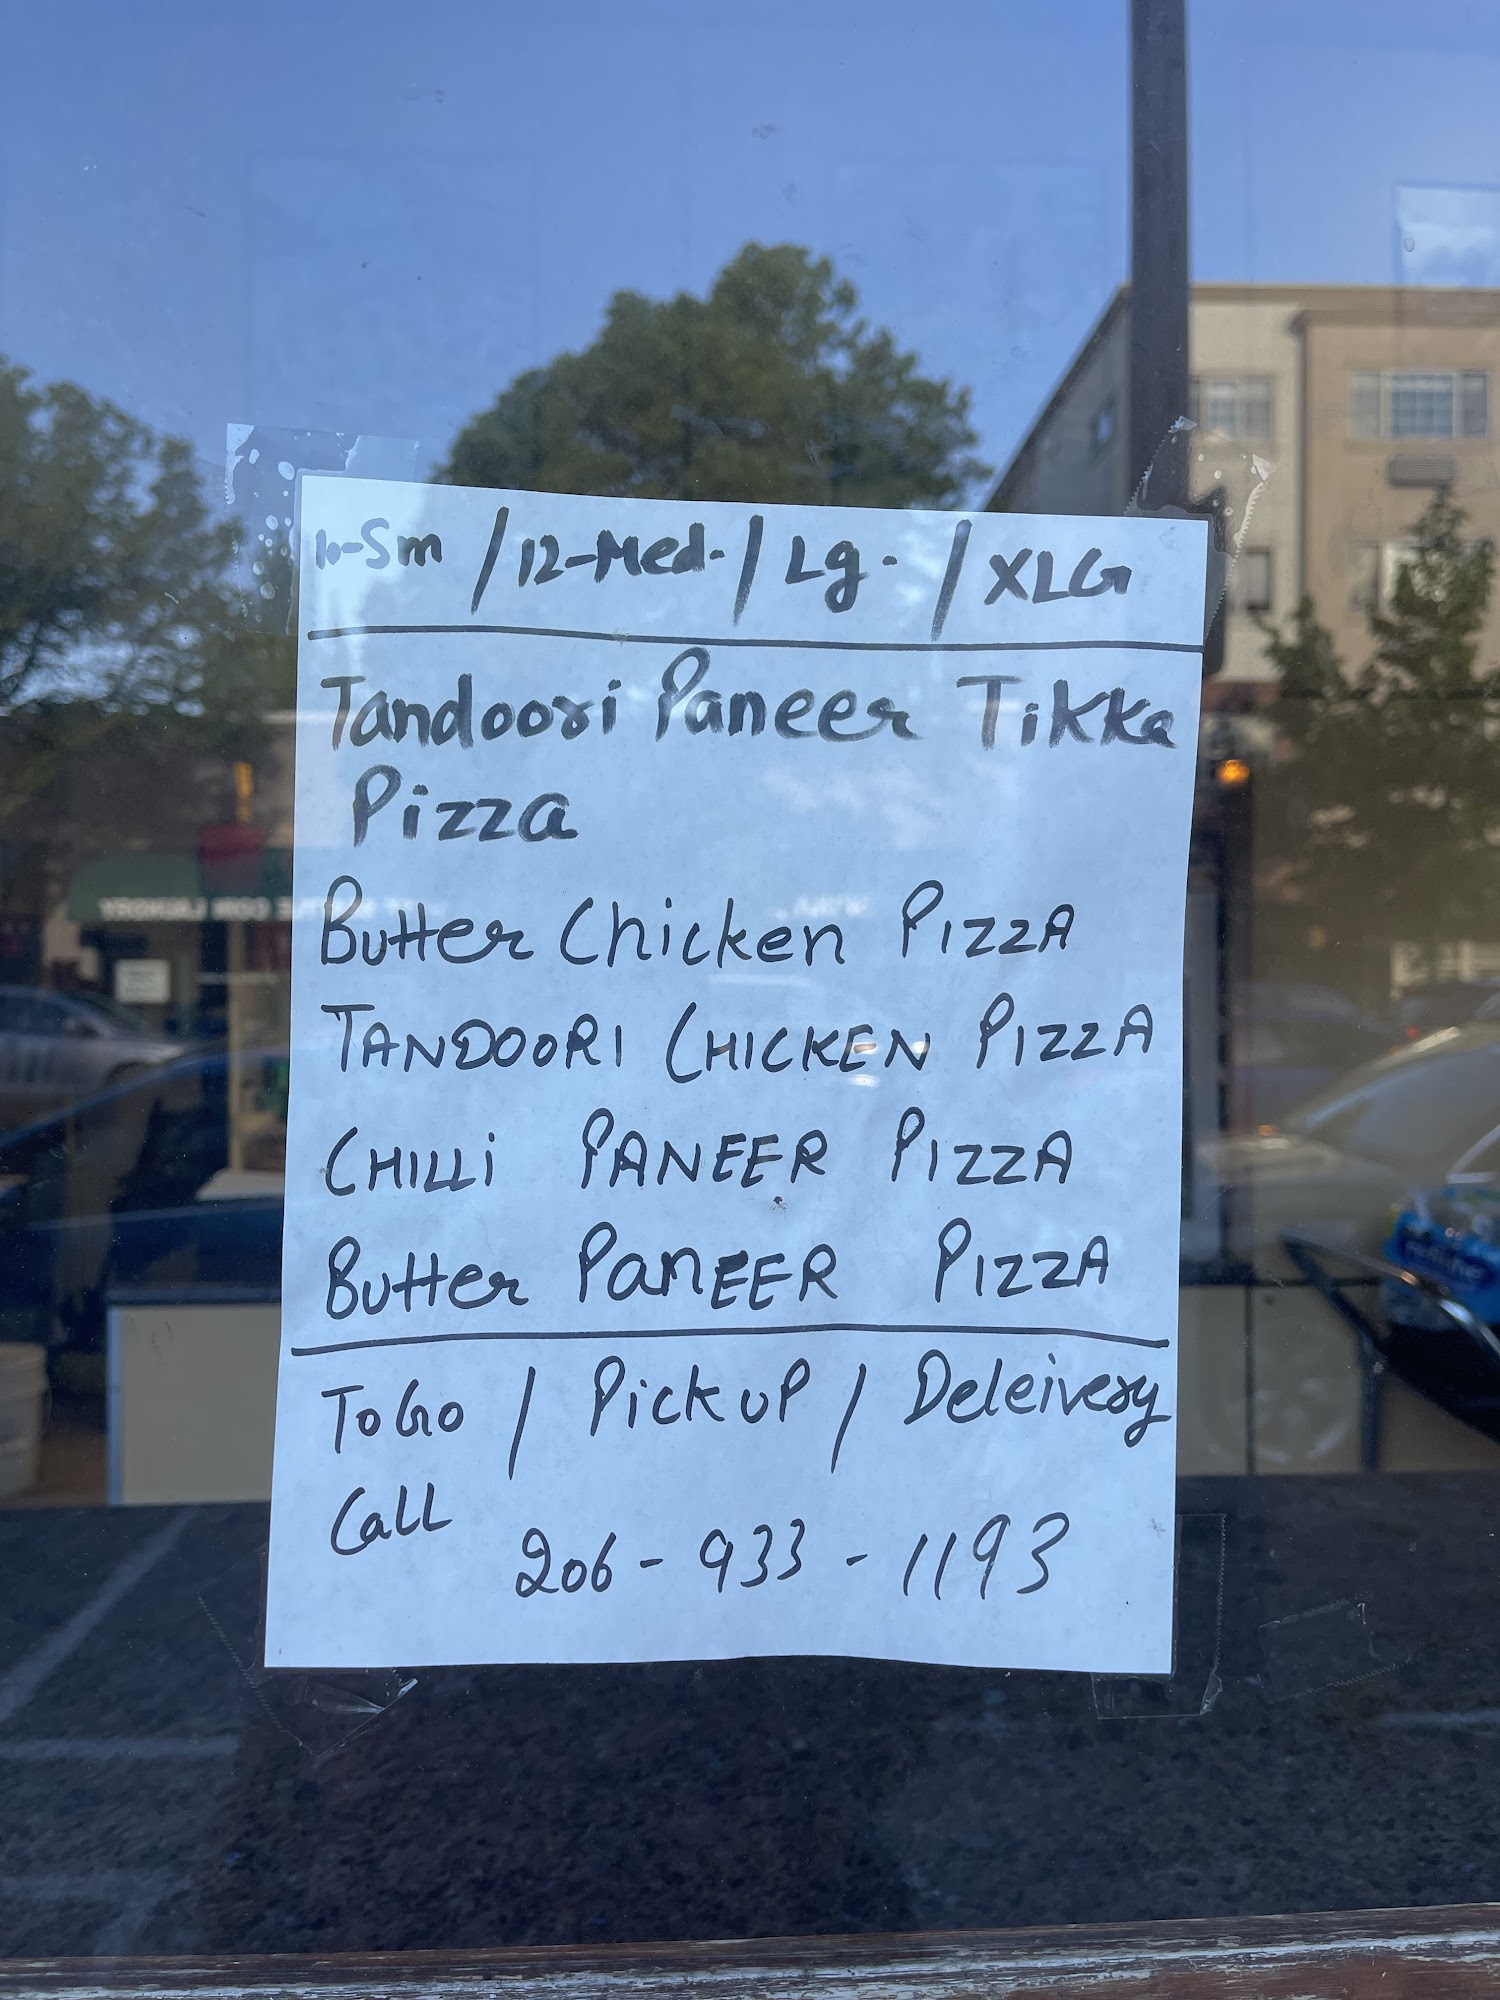 10-Sm / 12-Med. / Lg. / XLG
Tandoori Paneer Tikka
Pizza
Butter Chicken PIZZA
TANDOORI CHICKEN PIZZA
CHILLi PANEER PIZZA
Butter PanEER PIZZA
ToGo / Pick uP / Deleivery
Call
206-933-1193